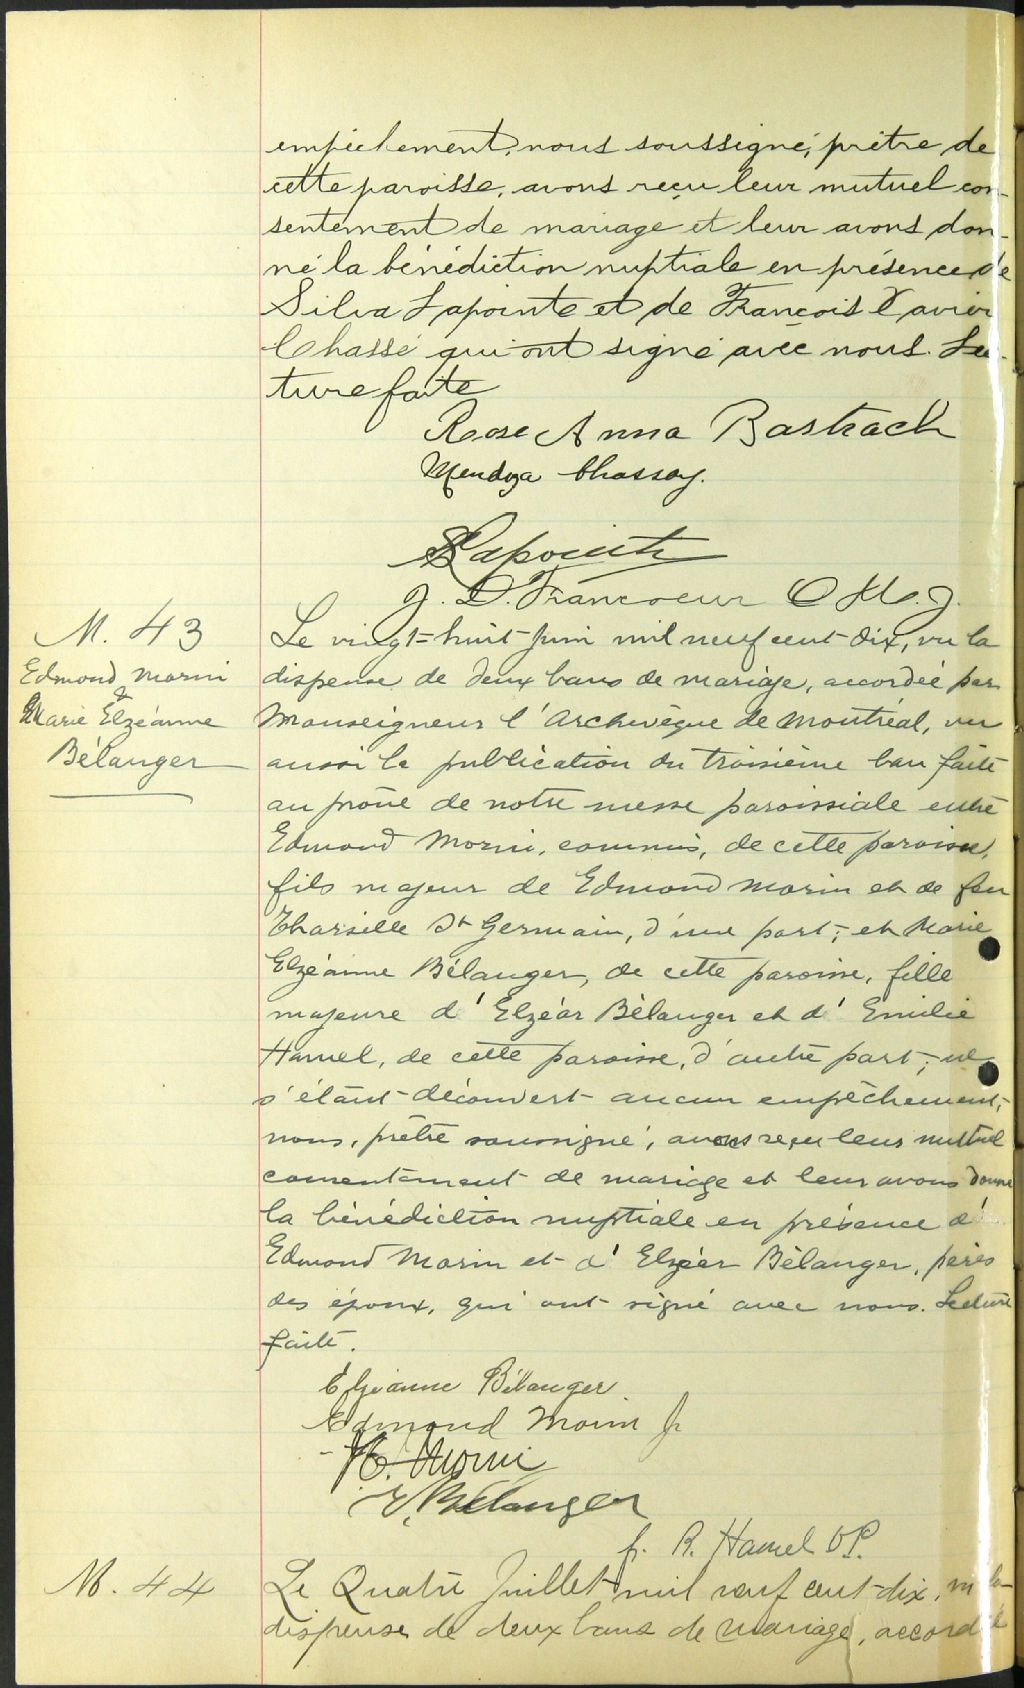 empêchement, nous soussigné, prêtre de
cette paroisse, avons reçu leur mutuel con-
sentement de mariage et leur avons don-
né la bénédiction nuptiale en présence de
Silva Lapointe et de François Xavier
Chassé qui ont signé avec nous. Lec-
ture faite
Rose Anna Bastrach
Mendoza Chassey.
S Lapointe
J. D. Francoeur O.M.J.
M. 43
Edmond Morin
&
Marie Elzéanne
Bélanger
Le vingt-huit Juin mil neuf cent dix, vu la
dispense de deux bans de mariage, accordée par
Monseigneur l'Archevêque de Montréal, vu
aussi la publication du troisième ban faite
au prône de notre messe paroissiale entre
Edmond Morin, commis, de cette paroisse,
fils majeur de Edmond Morin et de feu
Tharsille St Germain, d'une part; et Marie
Elzéanne Bélanger, de cette paroisse, fille
majeure d'Elzéar Bélanger et d'Emilie
Hamel, de cette paroisse, d'autre part; ne
s'étant découvert aucun empêchement,
nous, prêtre soussigné, avons reçu leur mutuel
consentement de mariage et leur avons donné
la bénédiction nuptiale en présence d'
Edmond Morin et d'Elzéar Bélanger, pères
des époux, qui ont signé avec nous. Lecture
faite.
Elzéanne Bélanger
Edmond Morin Jr
E. Morin
E. Bélanger
fr. R. Hamel OP.
M. 44
Le Quatre Juillet mil neuf cent dix, vu la
dispense de deux bans de mariage, accordée